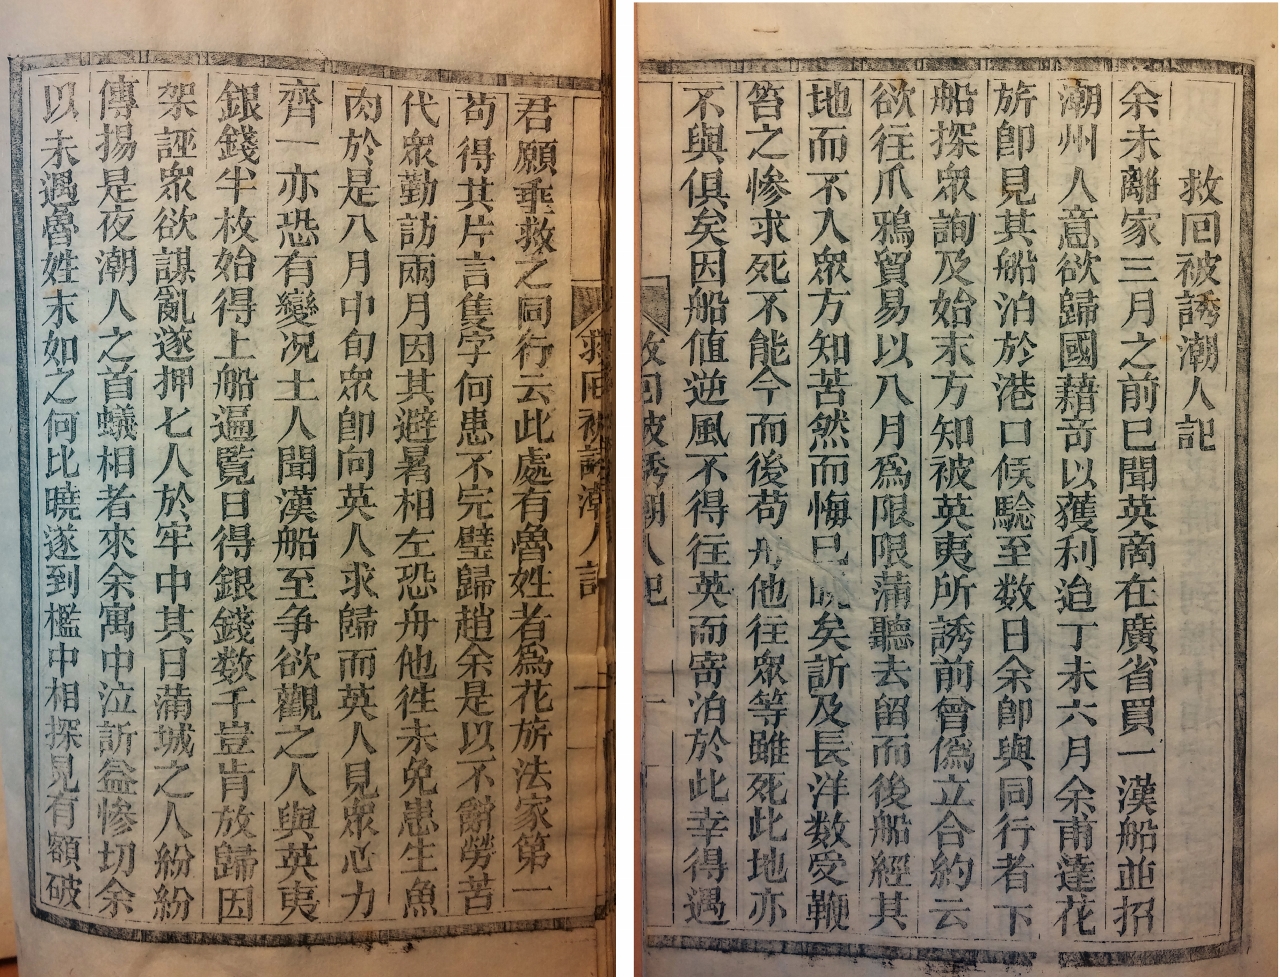 救回被誘潮人記
余未離家三月之前已聞英商在廣省買一漢船並招
潮州人意欲歸國藉奇以獲利迨丁未六月余甫達花
旂即見其船泊於港口候驗至数日余即與同行者下
船探衆詢及始末方知被英夷所誘前曾偽立合約云
欲往爪鴉貿易以八月為限限蒲聽去留而後船經其
地而不入衆方知苦然而悔已晚矣訴及長洋数受鞭
笞之慘求死不能今而後苟舟他往衆等雖死此地亦
不與俱矣因船値逆風不得往英而寄泊於此幸得遇
救回被誘潮人記
一
救回被誘潮人記
一
君願垂救之同行云此處有魯姓者為花旂法家第一
苟得其片言隻字何患不完璧歸趙余是以不辭勞苦
代衆勤訪兩月因其避暑相左恐舟他徃未免患生魚
肉於是八月中旬衆即向英人求歸而英人見衆心力
齊一亦恐有變况土人聞漢船至争欲觀之人與英夷
銀錢半枚始得上船遍覧日得銀錢数千豈肯放歸因
架誣衆欲謀亂遂押七人於牢中其日蒲城之人紛紛
傳揚是夜潮人之首蟻相者來余寓中泣訴益慘切余
以未遇魯姓末如之何比曉遂到檻中相探見有額破